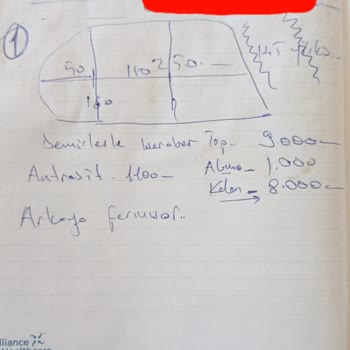 1
50 110² 50.-
160
Demirlerle beraber Top.. 9.000-
Antrasit. 1100- Alınan - 1.000
Kalan - 8.000-
Arkaya fermuar..
lliance